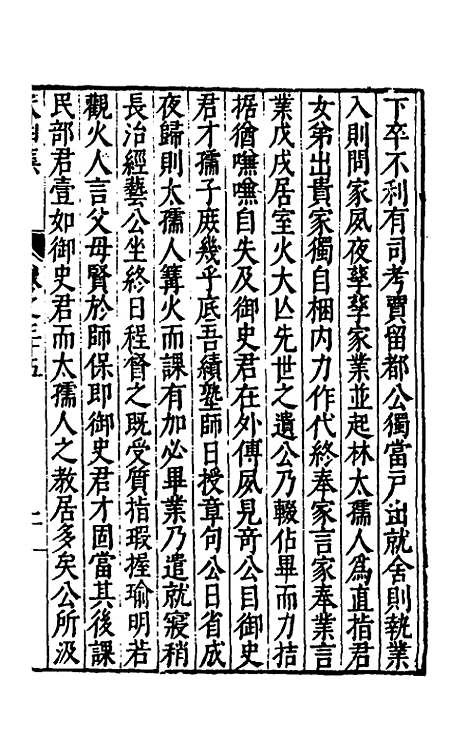 下卒不利有司考賈留都公獨當戶出就舍則執業
入則問家夙夜孳孳家業並起林太孺人為直指君
女弟出貴家獨自梱内力作代終奉家言家奉業言
業戊戌居室火大亾先世之遺公乃輟佔畢而力拮
据猶嘸嘸自失及御史君在外傅夙見竒公目御史
君才孺子庶幾乎底吾績塾師日授章句公日省成
夜歸則太孺人篝火而課有加必畢業乃遣就寢稍
長治經藝公坐終日程督之既受質指瑕握瑜明若
觀火人言父母賢於師保即御史君才固當其後課
民部君壹如御史君而太孺人之教居多矣公所汲